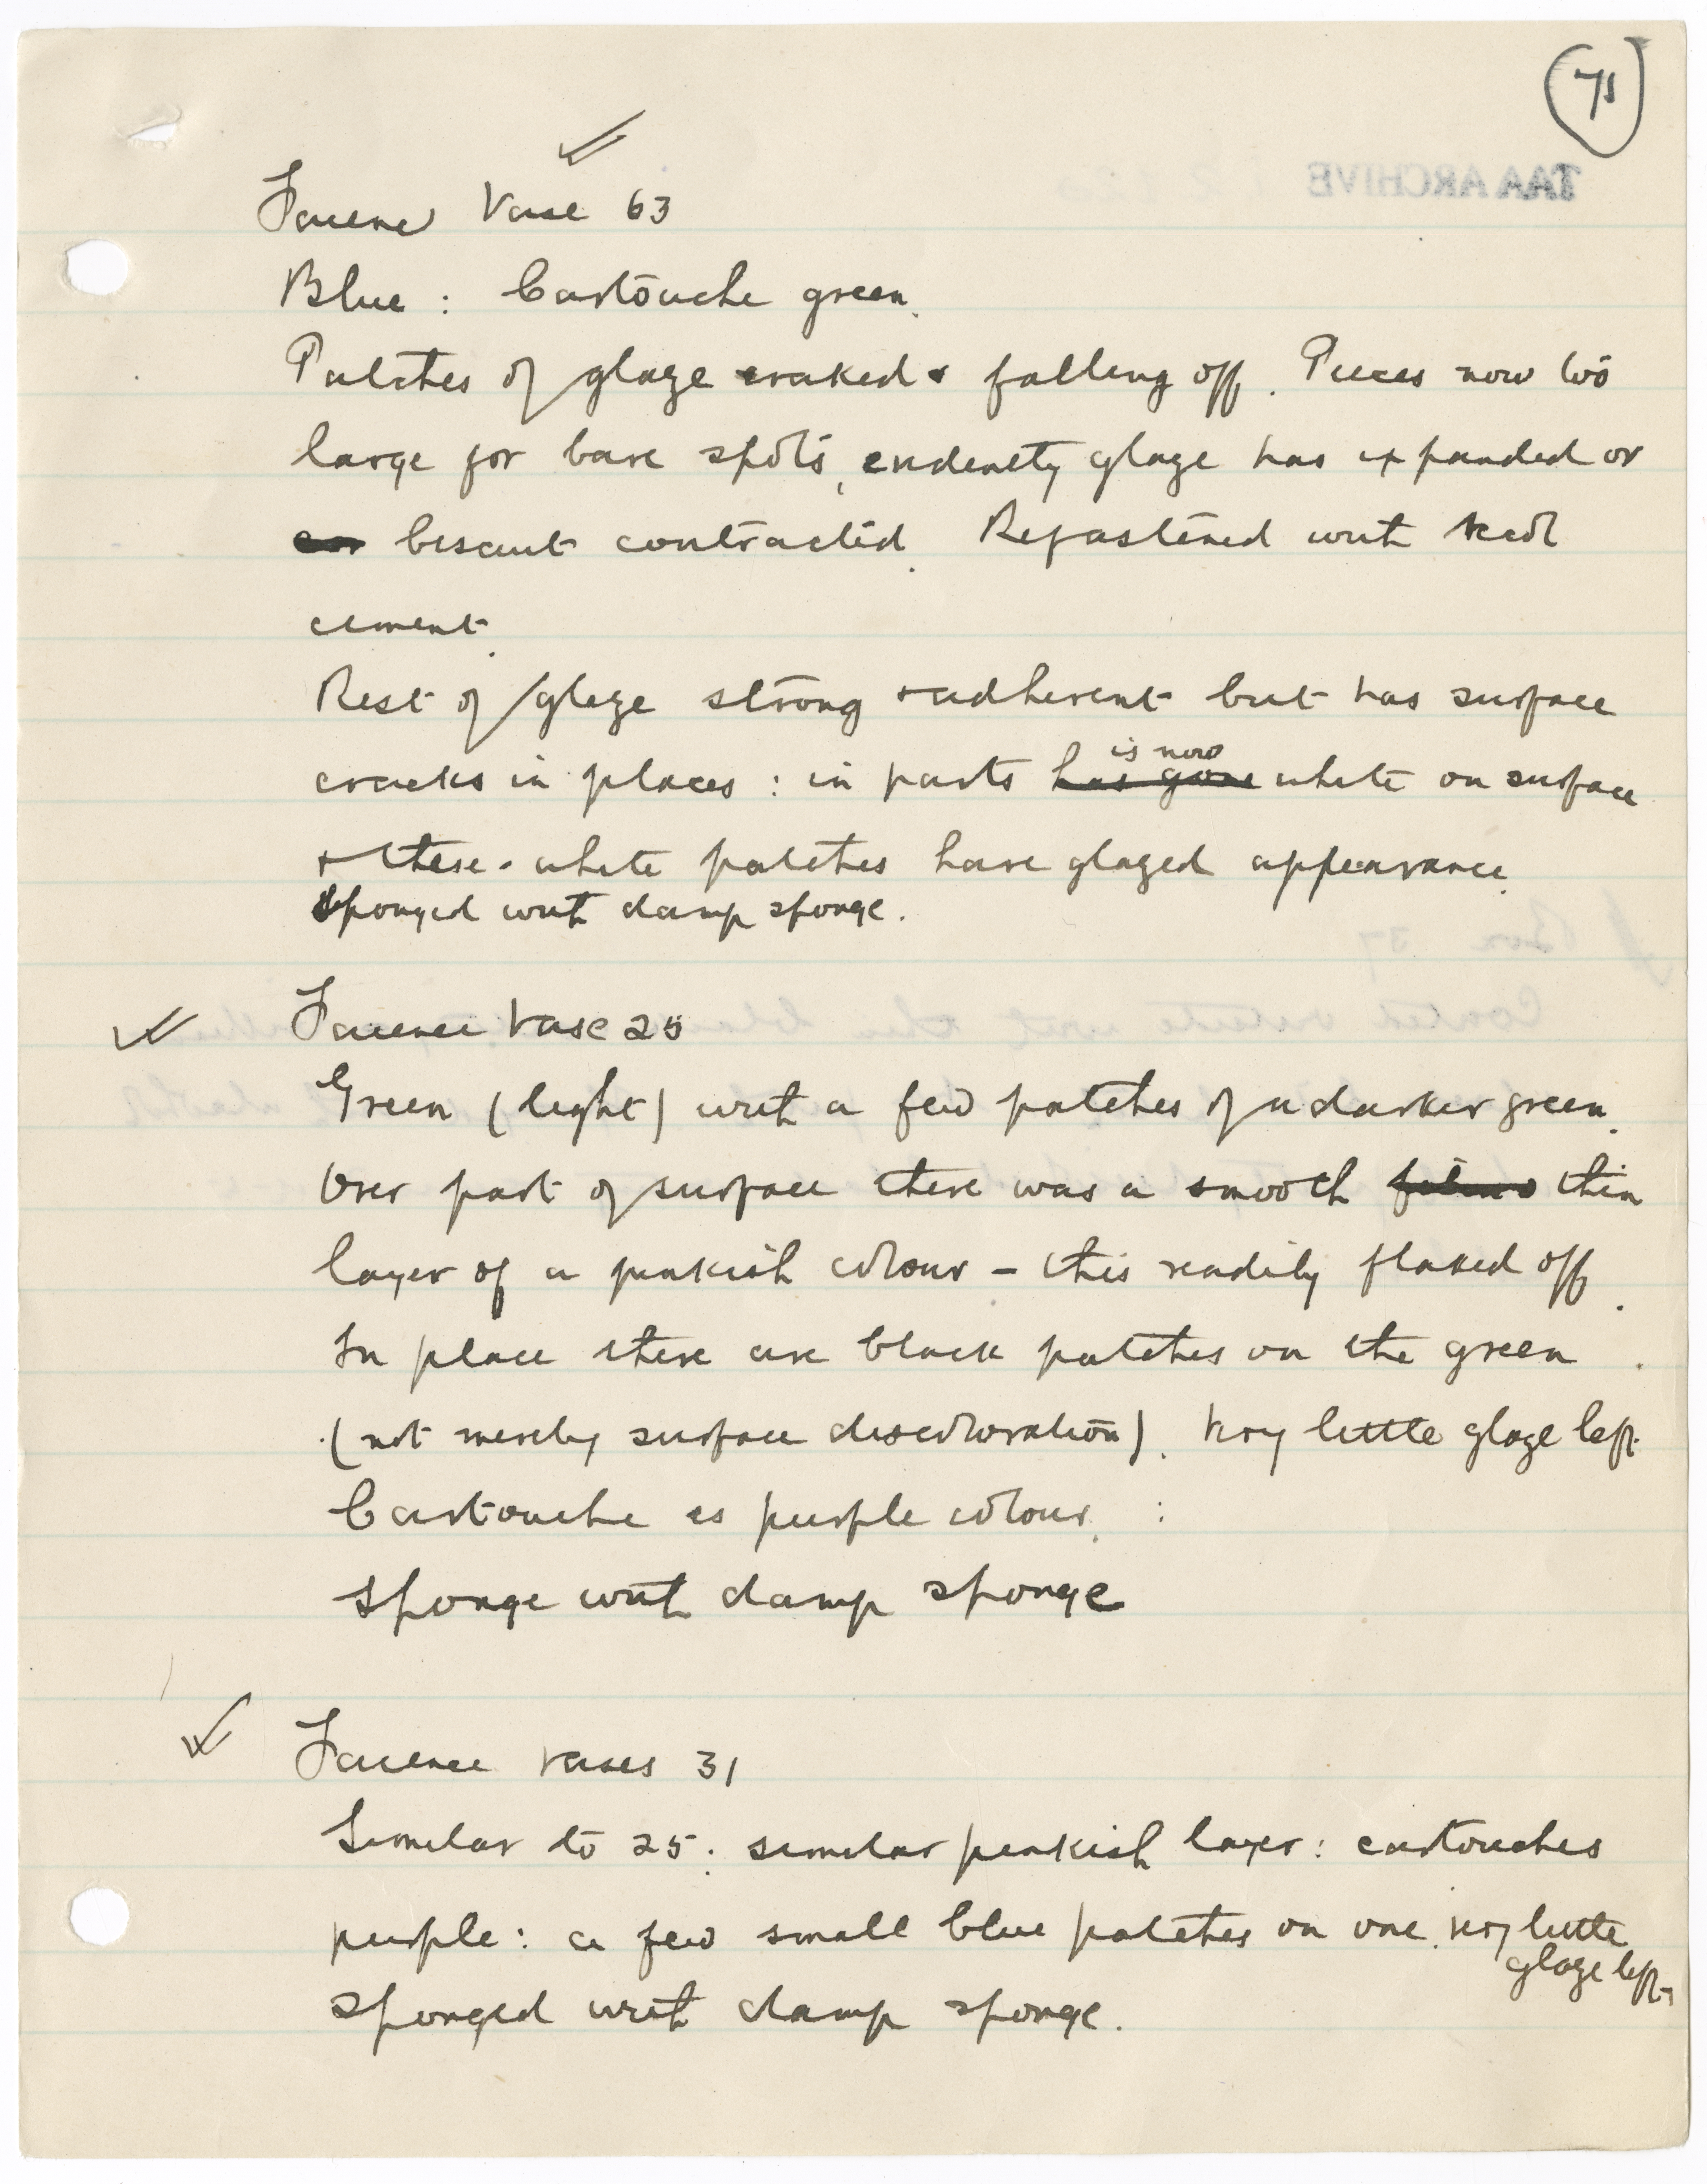 71
TAA ARCHIVE
Faience Vase 63
Blue : Cartouche green.
Patches of glaze craked & falling off. Pieces now too
large for bare spots, evidently glaze has expanded or
biscuit contracted. Refastened with
cement.
Rest of glaze strong & adherent but has surface
cracks in places : in parts has gone is now white on surface
& these white patches have glazed appearance.
Sponged with damp sponge.
Faience Vase 25
Green (light) with a few patches of a darker green.
Over part of surface there was a smooth films thin
layer of a pinkish colour – this readily flaked off.
In place there are black patches on the green
(not merely surface discolouration). Very little glaze left
Cartouche is purple colour. :
Sponge with damp sponge
Faience Vases 31
Similar to 25 : similar pinkish layer : cartouches
purple : a few small blue patches on one. Very little
glaze left
Sponged with damp sponge.